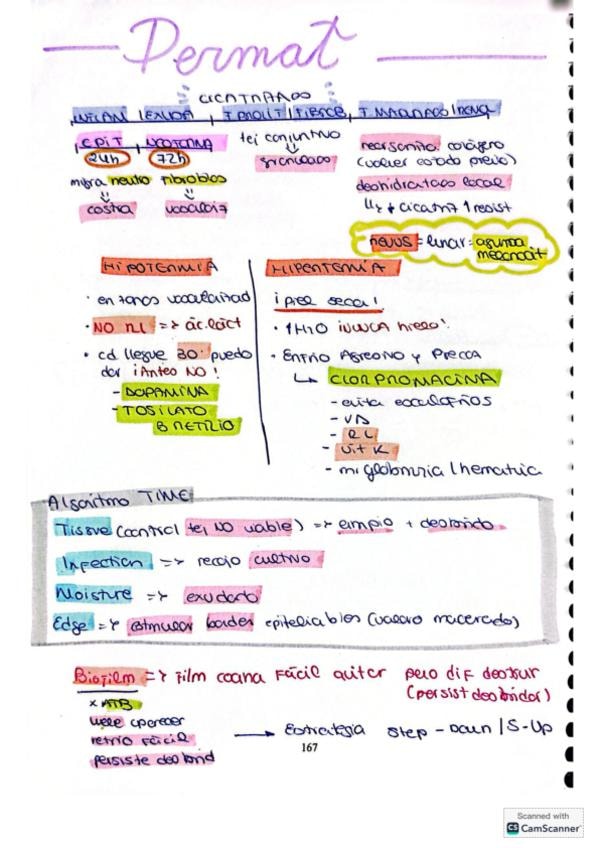 Dermat
CICATRIZADO
INFLAM / EXUDA, T. PROLIF / FIBROB, T. MADURADO / REMOD
EPIT, VCOTERMA
24h 72h
tej conjuntivo
granulado
migra neutro fibroblas
costra vascula
reorganiza colágeno
(volver estado previo)
deshidratado local
y + cicatriz ↑ resist
nevus = lunar = asunto
melanocit
HIPOTERMIA
· en zonas vascularizad
· NO RL => ác. láct
· cd. llegue 30° puedo
dar ¡Antes NO!
- DOPAMINA
- TOSILATO
BRETILIO
HIPERTERMIA
¡piel seca!
· ↑H2O ¡NUNCA hielo!
· Enfrío
↳ CLORPROMACINA
- evita escalofríos
- VD
- RL
- Vit K
- mioglobinuria / hematuria
Algoritmo TIME
Tissue (control tej NO viable) => limpio + desbrido
Infection => recojo cultivo
Moisture => exudado
Edge => estimular bordes epiteliables (cuidado macerado)
Biofilm => Film fácil quitar pero dif destruir
(persist desbridar)
x ATB
vuelve aparecer
retrio fácil
persiste desbrid
→ Estrategia Step-Down / S-Up
167
Scanned with
CS CamScanner